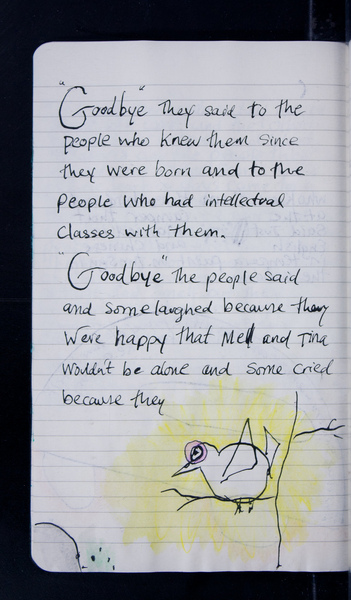 "Goodbye" they said to the
people who knew them since
they were born and to the
people who had intellectual
classes with them.
"Goodbye" the people said
and some laughed because they
were happy that Mell and Tina
wouldn't be alone and some cried
because they